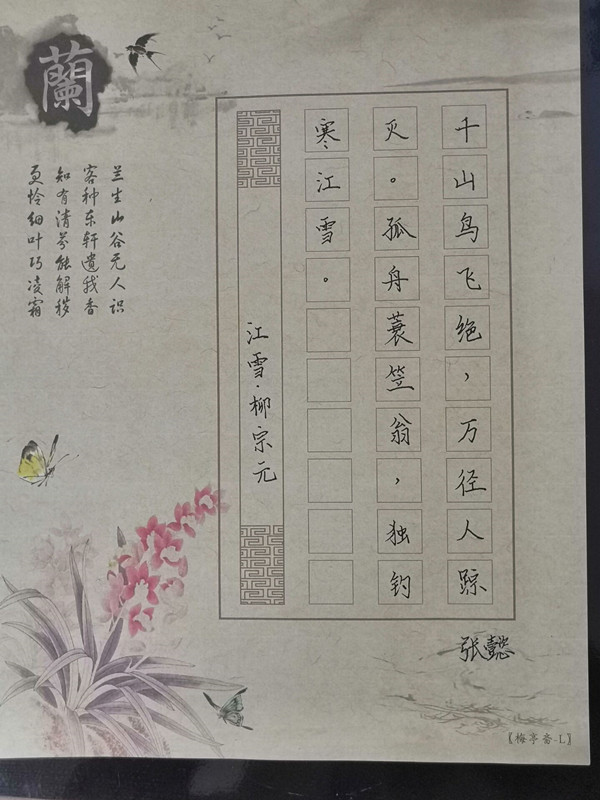 千山鸟飞绝，万径人踪
灭。孤舟蓑笠翁，独钓
寒江雪。
江雪·柳宗元
蘭
兰生山谷无人识
客种东轩遗我香
知有清芬能解秽
更怜细叶巧凌霜
张懿
【梅亭斋-L】